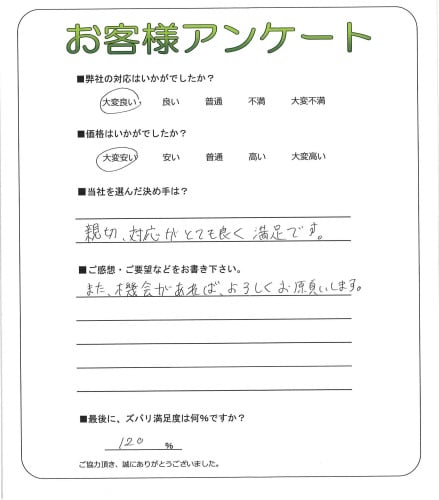 お客様アンケート
■弊社の対応はいかがでしたか？
大変良い 良い 普通 不満 大変不満
■価格はいかがでしたか？
大変安い 安い 普通 高い 大変高い
■当社を選んだ決め手は？
親切、対応がとても良く 満足です。
■ご感想・ご要望などをお書き下さい。
また、機会があれば、よろしくお願いします。
■最後に、ズバリ満足度は何％ですか？
120 ％
ご協力頂き、誠にありがとうございました。